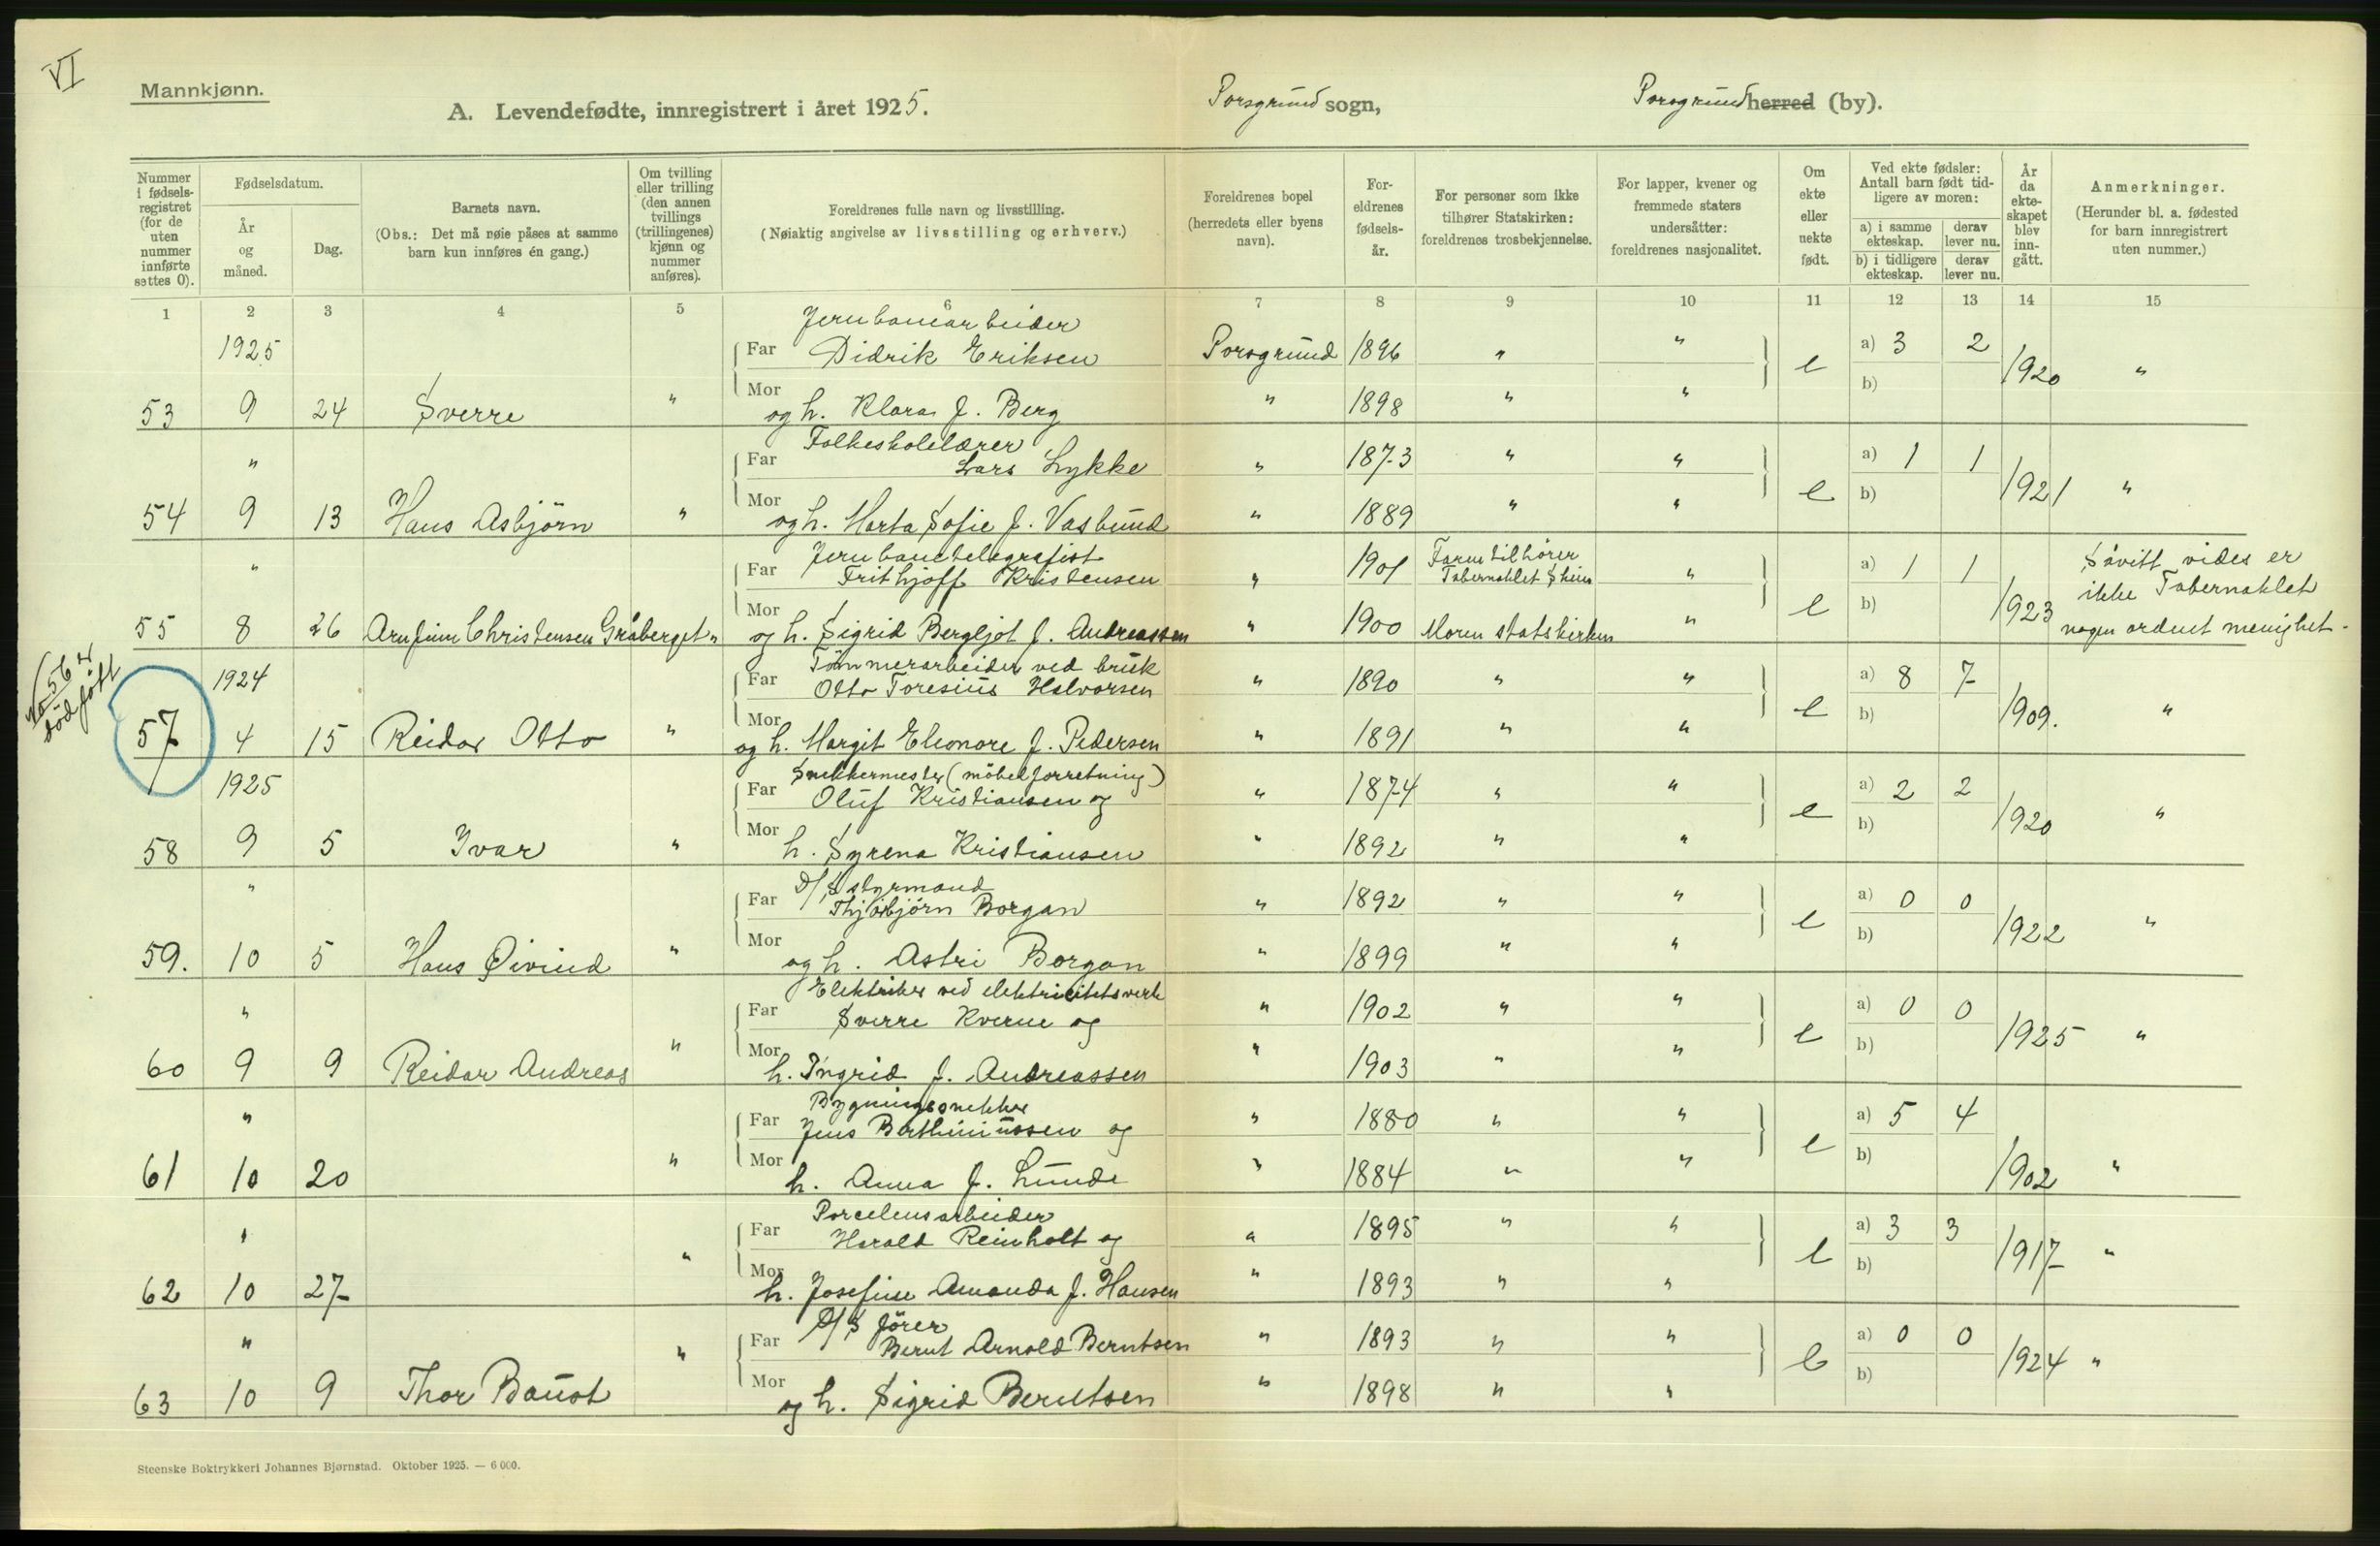 VI
Mannkjønn.
A. Levendefødte, innregistrert i året 1925.
Porsgrund sogn,
Porsgrund herred (by).
Nummer i fødsels-registret (for de uten nummer innførte settes 0).
Fødselsdatum.
År og måned.
Dag.
Barnets navn.
(Obs.: Det må nøie påses at samme barn kun innføres én gang.)
Om tvilling eller trilling (den annen tvillings (trillingenes) kjønn og nummer anføres).
Foreldrenes fulle navn og livsstilling.
(Nøiaktig angivelse av livsstilling og erhverv.)
Foreldrenes bopel (herredets eller byens navn).
For-eldrenes fødsels-år.
For personer som ikke tilhører Statskirken: foreldrenes trosbekjennelse.
For lapper, kvener og fremmede staters undersåtter: foreldrenes nasjonalitet.
Om ekte eller uekte født.
Ved ekte fødsler: Antall barn født tid-ligere av moren:
a) i samme ekteskap.
derav lever nu.
b) i tidligere ekteskap.
derav lever nu.
År da ekte-skapet blev inn-gått.
Anmerkninger.
(Herunder bl. a. fødested for barn innregistrert uten nummer.)
1 2 3 4 5 6 7 8 9 10 11 12 13 14 15
Jernbanearbeider
1925 Far Didrik Eriksen Porsgrund 1896 " " e a) 3 2 1920 "
53 9 24 Sverre " Mor og h. Klara f. Berg " 1898 " " b)
Folkeskolelærer
" Far Lars Lykke " 1873 " " e a) 1 1 1921 "
54 9 13 Hans Asbjörn " Mor og h. Marta Sofie f. Vasbund " 1889 " " b)
Jernbanetelegrafist
" Far Frithjoff Kristensen " 1901 Faren tilhører Tabernaklet Skien " e a) 1 1 1923 Såvitt vides er ikke Tabernaklet nogen ordnet menighet.
55 8 26 Arnfinn Christensen Gråberget " Mor og h. Sigrid Bergljot f. Andreassen " 1900 Moren statskirken " b)
No 56 er dödfött
Tömmerarbeider ved bruk
1924 Far Otto Toresius Halvorsen " 1890 " " e a) 8 7 1909. "
57 4 15 Reidar Otto " Mor og h. Margit Eleonore f. Pedersen " 1891 " " b)
Snekkermester (möbelforretning)
1925 Far Oluf Kristiansen og " 1874 " " e a) 2 2 1920 "
58 9 5 Ivar " Mor h. Syrena Kristiansen " 1892 " " b)
D/S styrmand
" Far Thjorbjörn Borgan " 1892 " " e a) 0 0 1922 "
59. 10 5 Hans Øivind " Mor og h. Astri Borgan " 1899 " " b)
Elektriker ved elektricitetsverk
" Far Sverre Kverne og " 1902 " " e a) 0 0 1925 "
60 9 9 Reidar Andreas " Mor h. Ingrid f. Andreassen " 1903 " " b)
Bygningssnekker
" Far Jens Berthiniussen og " 1880 " " e a) 5 4 1902 "
61 10 20 " Mor h. Anna f. Lunde " 1884 " " b)
Porcelensarbeider
" Far Harald Reinholt og " 1895 " " e a) 3 3 1917 "
62 10 27 " Mor h. Josefine Amanda f. Hansen " 1893 " " b)
D/S förer
" Far Bernt Arnold Berntsen " 1893 " " e a) 0 0 1924 "
63 10 9 Thor Baust " Mor og h. Sigrid Berntsen " 1898 " " b)
Steenske Boktrykkeri Johannes Bjørnstad. Oktober 1925. — 6 000.